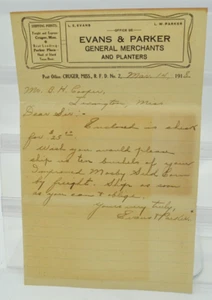 L. S. EVANS
L. W. PARKER
OFFICE OF
EVANS & PARKER
GENERAL MERCHANTS
AND PLANTERS
SHIPPING POINTS,
Freight and Express
Post Office, CRUGER, MISS., R. F. D. No. 2, Mar 14, 191
Mr. B H Cooper,
Lexington, Miss
Dear Sir:- Enclosed is check
for $25.00
Wish you would please
ship us ten bushels of your
Improved Mosby Seed Corn
by freight. Ship as soon
as you can & oblige.
Yours very truly,
Evans & Parker